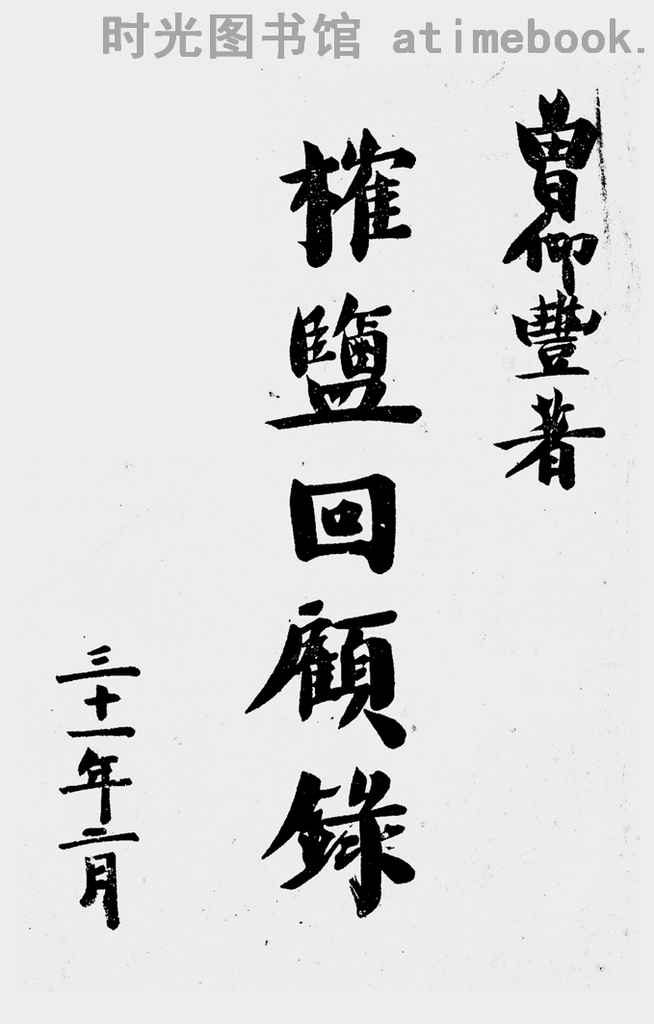 时光图书馆 atimebook.
曾仰豐著
榷鹽回顧錄
三十一年二月